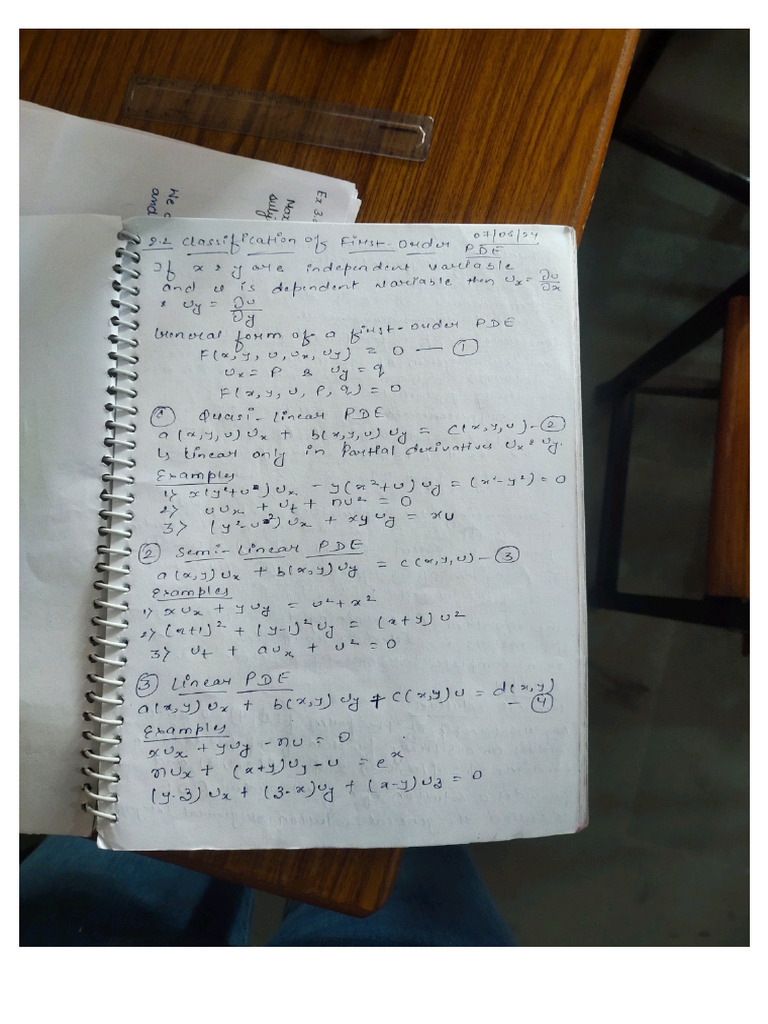 07/05/24
2.2 Classification of First-Order PDE
If x & y are independent variable
and u is dependent variable then uₓ = ∂u/∂x
& u_y = ∂u/∂y
General form of a first-order PDE
F(x, y, u, uₓ, u_y) = 0 — ①
uₓ = P & u_y = q
F(x, y, u, P, q) = 0
① Quasi-Linear PDE
a(x,y,u)uₓ + b(x,y,u)u_y = C(x,y,u) — ②
is linear only in Partial derivatives uₓ & u_y.
Examples
1) x(y²+u²)uₓ - y(x²+u)u_y = (x²-y²) = 0
2) uuₓ + u_t + nu² = 0
3) (y²-u²)uₓ + xyu_y = xu
② Semi-Linear PDE
a(x,y)uₓ + b(x,y)u_y = c(x,y,u) — ③
Examples
1) xuₓ + yu_y = u²+x²
2) (x+1)² + (y-1)²u_y = (x+y)u²
3) u_t + auₓ + u² = 0
③ Linear PDE
a(x,y)uₓ + b(x,y)u_y + C(x,y)u = d(x,y)
— ④
Examples
xuₓ + yu_y - nu = 0
nuₓ + (x+y)u_y - u = eˣ
(y-3)uₓ + (3-x)u_y + (x-y)u₃ = 0
Ex 3.
No
subj
He
and